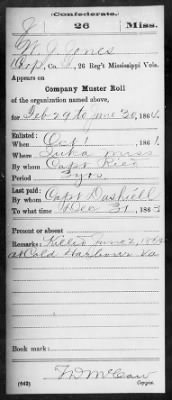 Confederate.
J 26 Miss.
W. J. Jones
Cop., Co. , 26 Reg't Mississippi Vols.
Appears on
Company Muster Roll
of the organization named above,
for Feb 29 to June 30, 1864.
Enlisted:
When Oct 1, 1861.
Where Iuka Miss
By whom Capt Reid
Period 3 yrs.
Last paid:
By whom Capt Dashiell
To what time Dec 31, 1863
Present or absent
Remarks: Killed June 2 1864
at Cold Harbour Va
Book mark:
(642) Copyist.